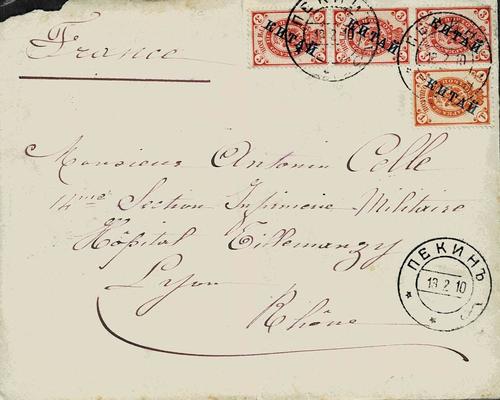 France
3 3 3 3 3
КИТАЙ КИТАЙ КИТАЙ
ПЕКИНЪ
18 2 10
18 2 10
1 1
КИТАЙ
Monsieur Antonin Celle
14ème Section Infirmerie Militaire
Hôpital Villemanzy
Lyon
Rhône
ПЕКИНЪ
18 2 10